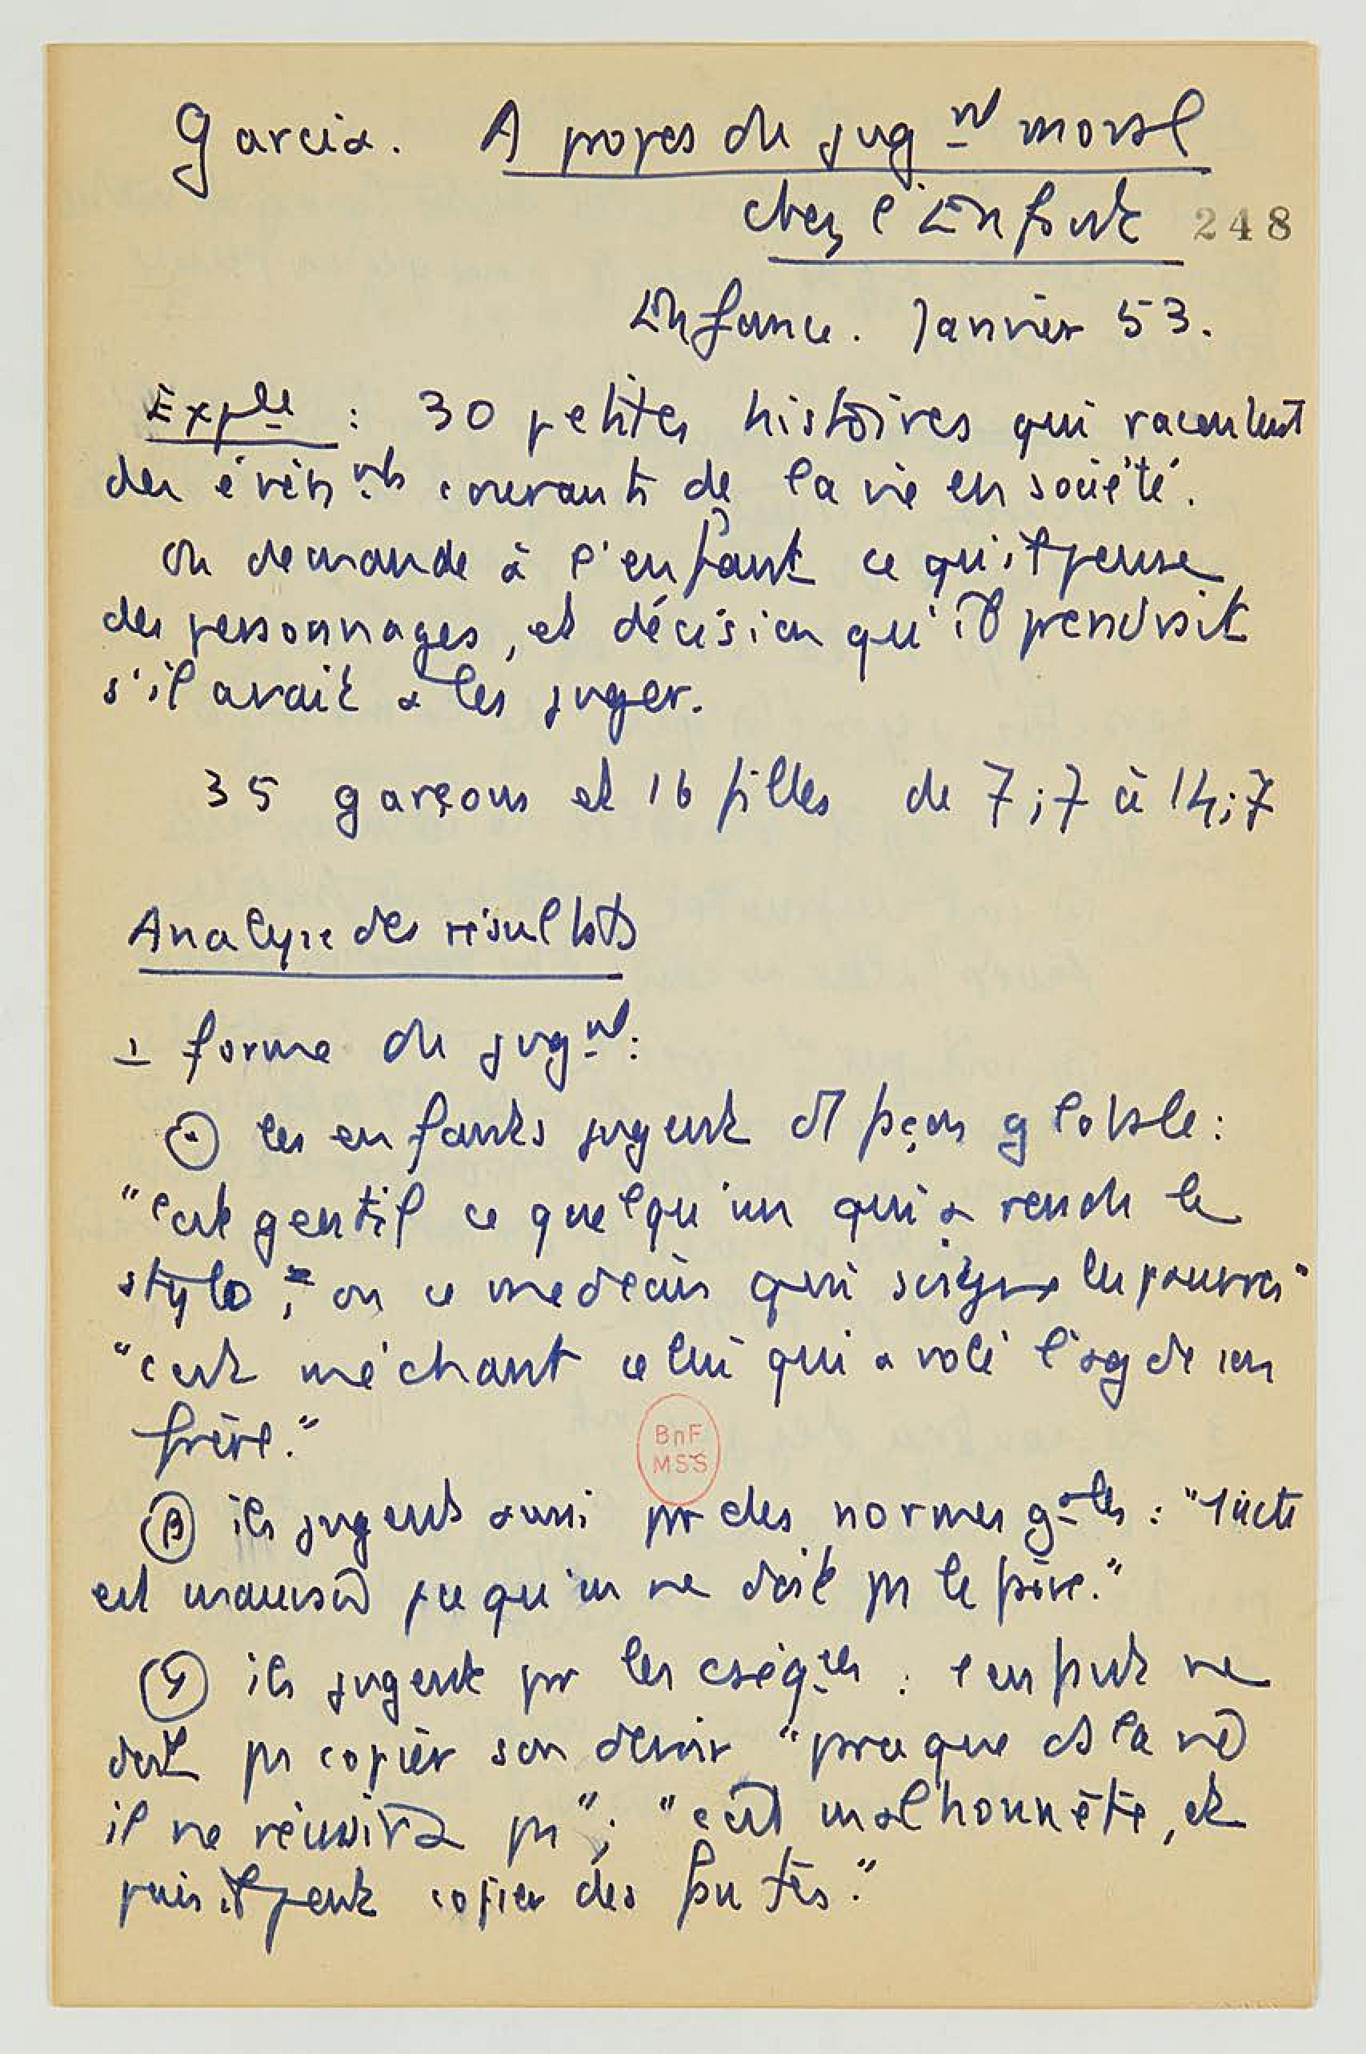 Garcia. A propos du jug.nt moral
chez l'Enfant 248
Enfance. Janvier 53.
Expce : 30 petites histoires qui racontent
des évén.nts courants de la vie en société.
On demande à l'enfant ce qu'il pense
des personnages, et décision qu'il prendrait
s'il avait à les juger.
35 garçons et 16 filles de 7;7 à 14;7
Analyse des résultats
1 forme du jug.nt :
les enfants jugent façon globale :
"c'est gentil ce quelqu'un qui a rendu le
stylo ; ou ce médecin qui soigne les pauvres"
"c'est méchant celui qui a volé l'arg de son
frère."
β ils jugent aussi pr des normes g.ales :
est mauvais pce qu'on ne doit ps le faire."
γ ils jugent pr les cséq.ces : l'enfant ne
doit ps copier son devoir "parce que ds la vie
il ne réussira ps" ; "c'est malhonnête, et
puis il peut copier des fautes."
BnF
MSS